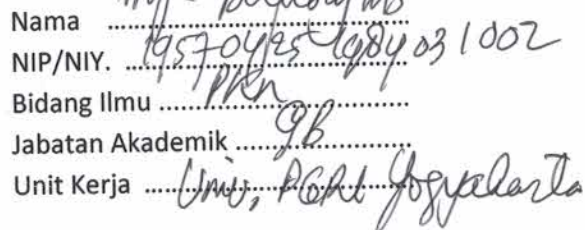 Nama ..........................................
NIP/NIY. 19570425 198403 1002
Bidang Ilmu PKn
Jabatan Akademik GB
Unit Kerja Univ, PGRI Yogyakarta